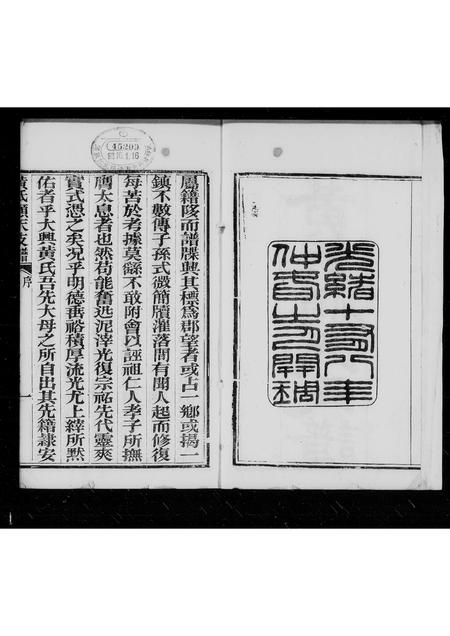 光緒十有八年
仲春
開雕
屬籍
而譜牒興其標為郡望者或占一鄉或揭一
鎮不數傳子孫式微簡牘
落間有聞人起而修復
每苦於考據莫繇不敢附會以誣祖仁人孝子所撫
膺太息者也然苟能奮迅泥滓光復宗祊先代靈爽
實式憑之矣況乎明德垂裕積厚流光尤上縡所默
佑者乎大興黃氏吾先大母之所自出其先籍隸安
黃氏順天支譜
序
一
45299